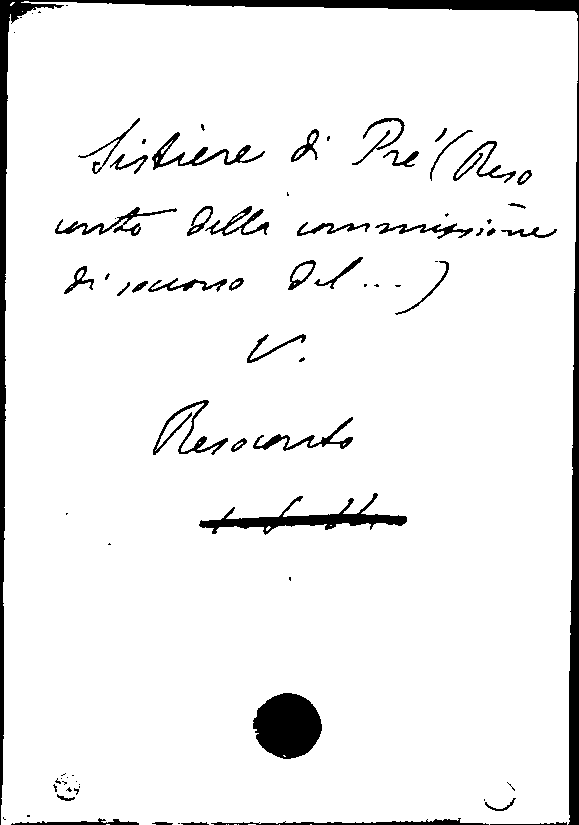 Sistiere di Pré (Reso
conto della commissione
di soccorso del ...)
V.
Resoconto